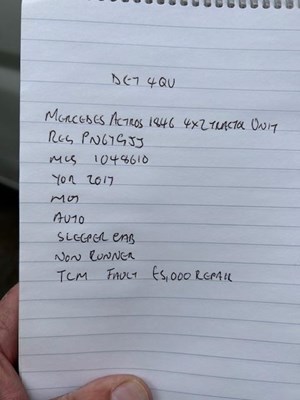 DE7 4QU
MERCEDES ACTROS 1846 4X2 TRACTOR UNIT
REG PN67GJJ
MLS 1048610
YOR 2017
MOT
AUTO
SLEEPER CAB
NON RUNNER
TCM FAULT £5,000 REPAIR